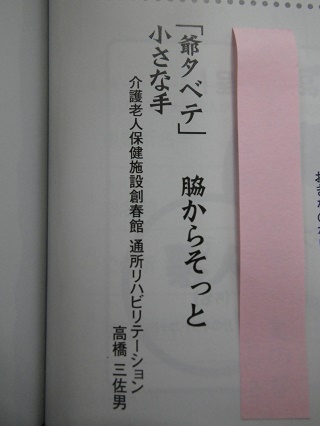 「爺タベテ」　脇からそっと
小さな手
介護老人保健施設創春館 通所リハビリテーション
高橋 三佐男